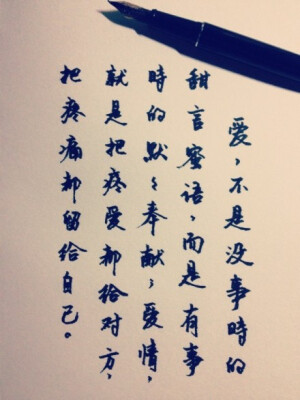 爱,不是没事時的
甜言蜜语,而是有事
時的默々奉献;爱情,
就是把疼爱都给对方,
把疼痛都留给自己。